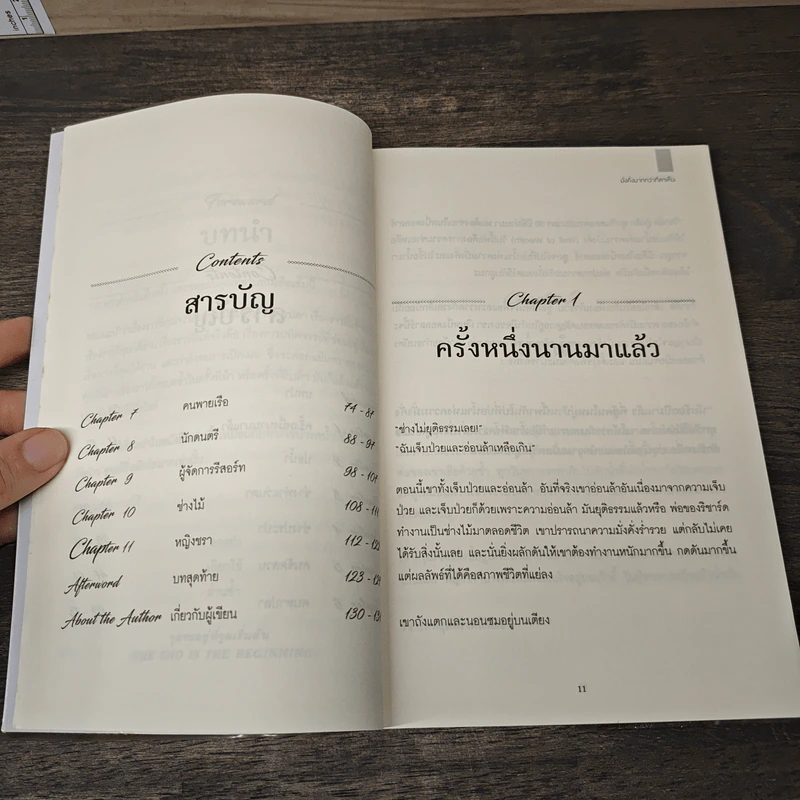 inches
Contents
สารบัญ
Chapter 7 คนพายเรือ 74 - 87
Chapter 8 นักดนตรี 88 - 97
Chapter 9 ผู้จัดการรีสอร์ท 98 - 107
Chapter 10 ช่างไม้ 108 - 111
Chapter 11 หญิงชรา 112 - 122
Afterword บทสุดท้าย 123 - 129
About the Author เกี่ยวกับผู้เขียน 130 - 131
มั่งคั่งมากกว่าที่ตาเห็น
Chapter 1
ครั้งหนึ่งนานมาแล้ว
"ช่างไม่ยุติธรรมเลย!"
"ฉันเจ็บป่วยและอ่อนล้าเหลือเกิน"
ตอนนี้เขาทั้งเจ็บป่วยและอ่อนล้า อันที่จริงเขาอ่อนล้าอันเนื่องมาจากความเจ็บ
ป่วย และเจ็บป่วยก็ด้วยเพราะความอ่อนล้า มันยุติธรรมแล้วหรือ พ่อของริชาร์ด
ทำงานเป็นช่างไม้มาตลอดชีวิต เขาปรารถนาความมั่งคั่งร่ำรวย แต่กลับไม่เคย
ได้รับสิ่งนั้นเลย และนั่นยิ่งผลักดันให้เขาต้องทำงานหนักมากขึ้น กดดันมากขึ้น
แต่ผลลัพธ์ที่ได้คือสภาพชีวิตที่แย่ลง
เขาถังแตกและนอนซมอยู่บนเตียง
11